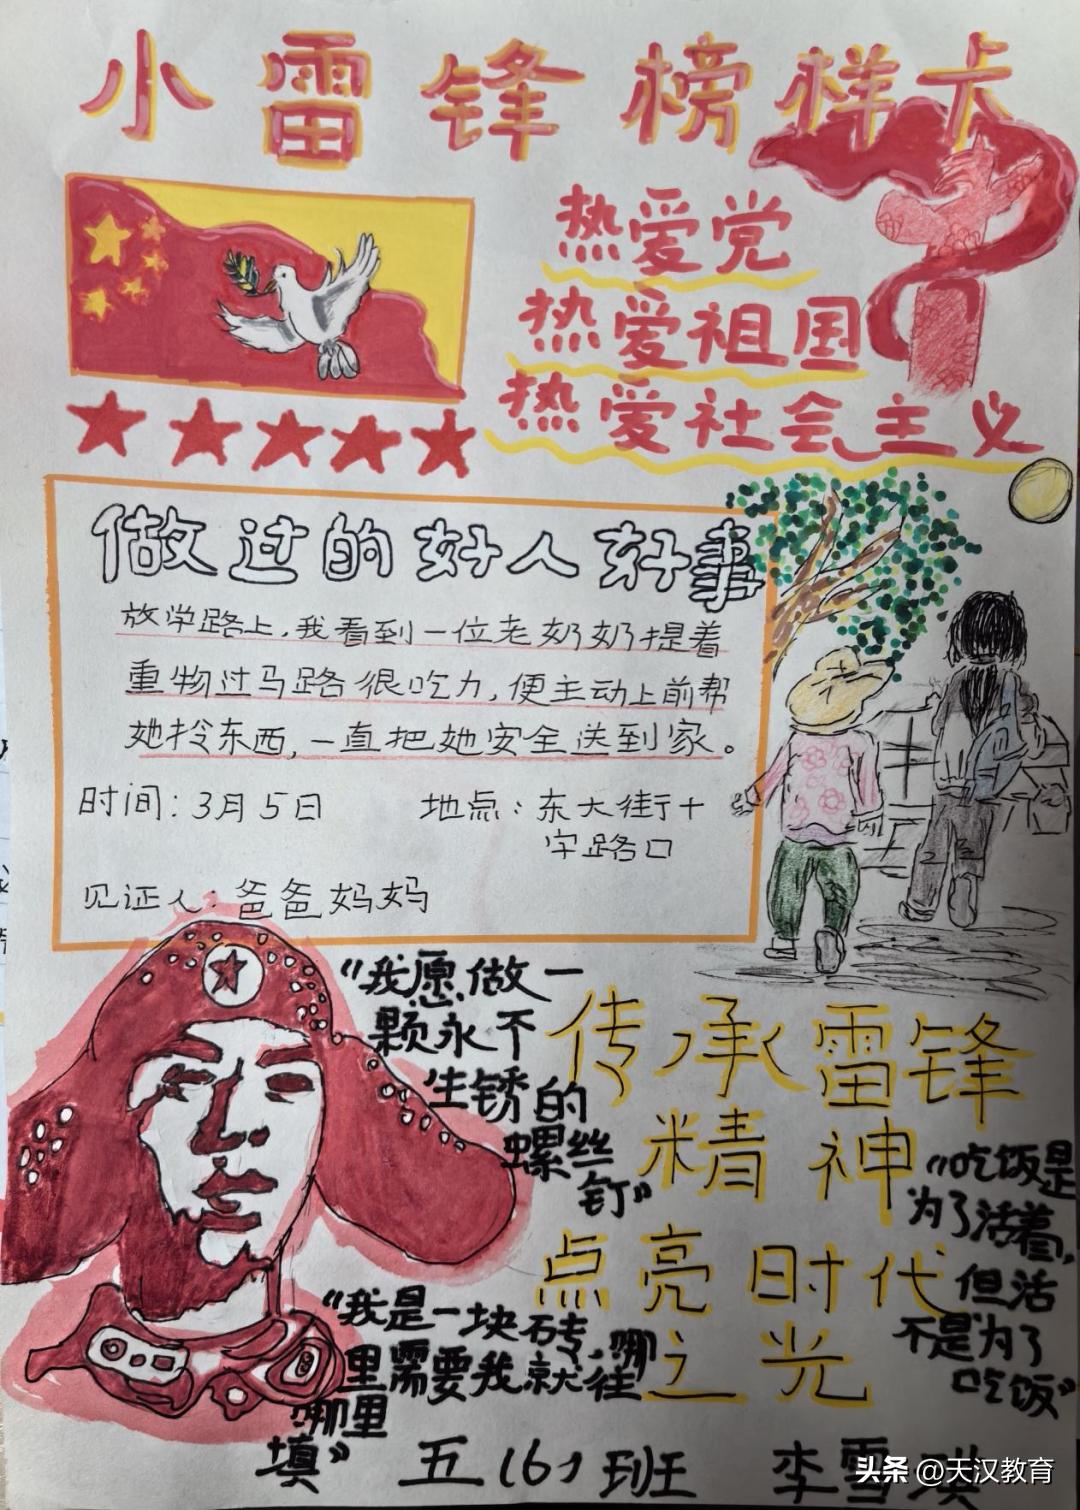 小雷锋榜样卡
热爱党
热爱祖国
热爱社会主义
做过的好人好事
放学路上，我看到一位老奶奶提着
重物过马路很吃力，便主动上前帮
她拎东西，一直把她安全送到家。
时间：3月5日
地点：东大街十
字路口
见证人：爸爸妈妈
“我愿做一
颗永不
生锈的
螺丝
钉”
传承雷锋
精神
点亮时代
之光
“吃饭是
为了活着，
但活
不是为了
吃饭”
“我是一块砖，哪
里需要我就往
哪里
填”
五（6）班
李雪
头条 @天汉教育